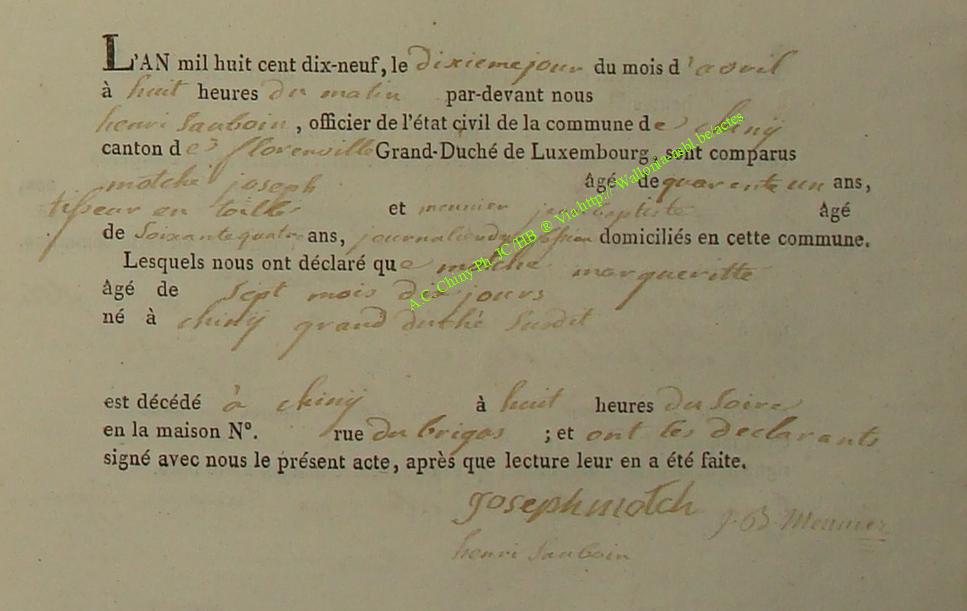 L'AN mil huit cent dix-neuf, le dixieme jour du mois d'avril
à huit heures du matin par-devant nous
henri Sauboin, officier de l'état civil de la commune de chiny
canton de florenville Grand-Duché de Luxembourg, sont comparus
motche joseph âgé de quarente un ans,
tisseur en toilles et meunier jean baptiste âgé
de Soixante quatre ans, journalier domiciliés en cette commune.
Lesquels nous ont déclaré que motche margueritte
âgé de sept mois dix jours
né à chiny grand duché Susdit
est décédé à chiny à huit heures du Soire
en la maison N°. rue du brigas ; et ont les declarants
signé avec nous le présent acte, après que lecture leur en a été faite.
joseph motch J.B. Meunier
henri Sauboin
A.C. Chiny Ph. JC/HB ® Via http://Wallonia-asbl.be/actes